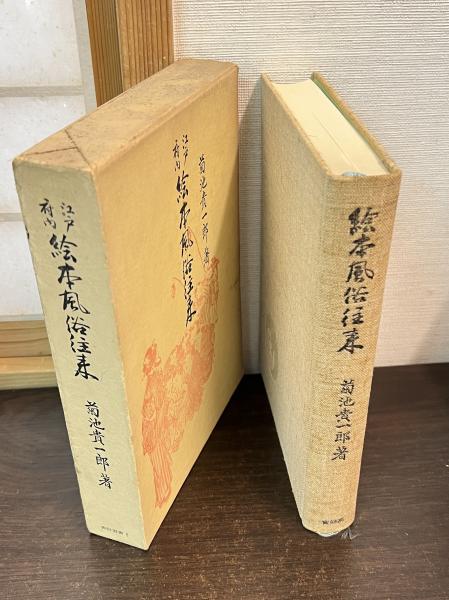 江戸
府内
絵本風俗往来
菊池貴一郎著
江戸
府内
絵本風俗往来
菊池貴一郎著
絵本風俗往来
菊池貴一郎著